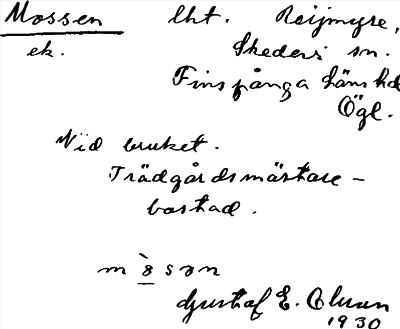 Mossen lht. Reijmyre,
ek. Skedevi sn.
Finspånga läns hd
Ögl.
Vid bruket.
Trädgårdsmästare-
bostad.
Gustaf E. Olsson
1930